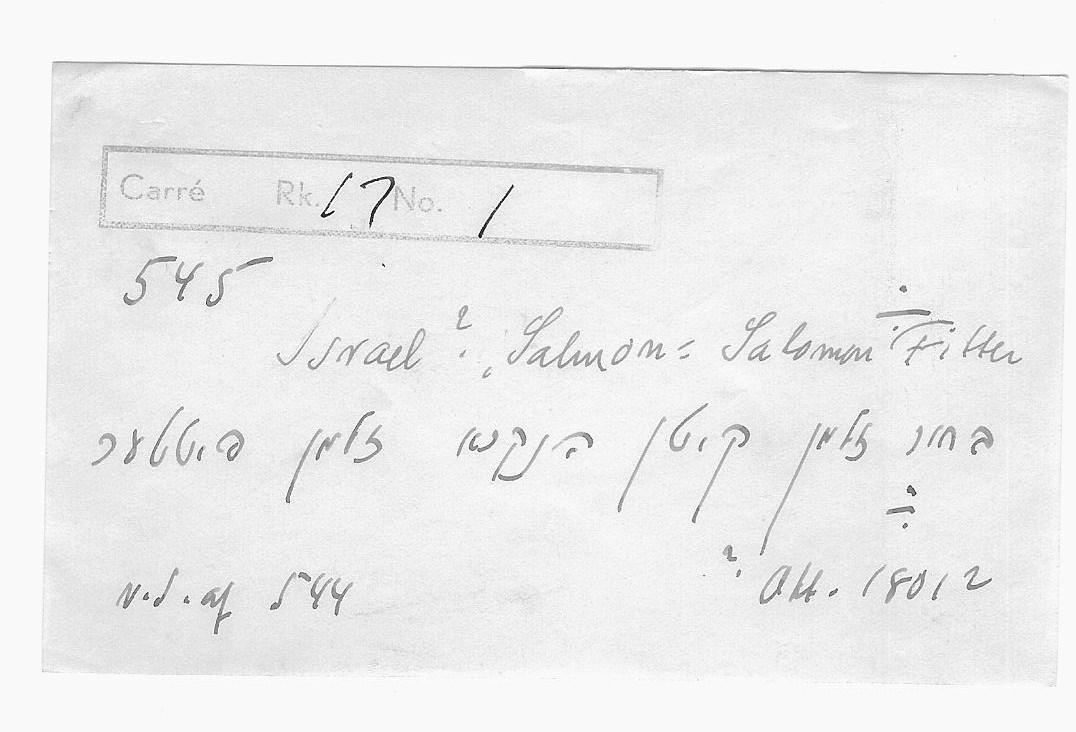 Carré Rk. 17 No. 1
545
÷
Israel ?, Salmon = Salomon Fitter
בחור זלמן קיטן הנקרא זלמן פיטטער
÷
n.s. af 544 ? Okt. 1801 2